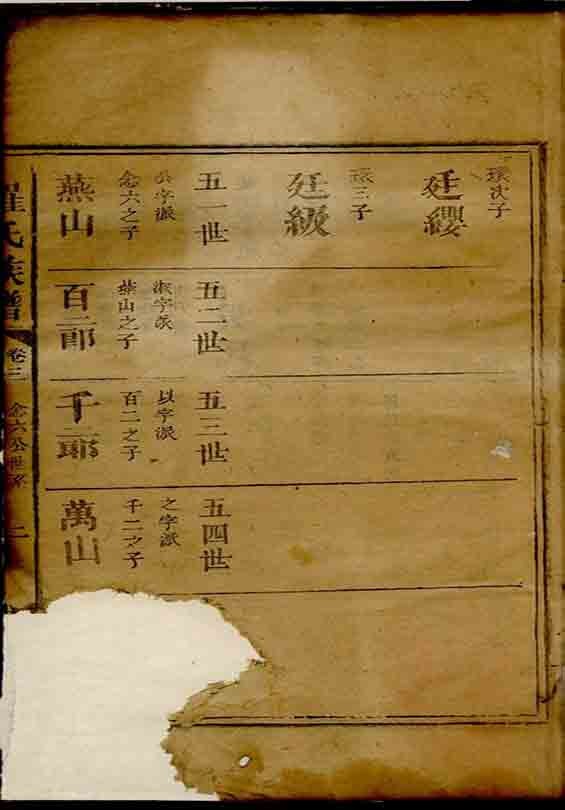 環次子
廷纓
環三子
廷級
五一世
字派
念六之子
燕山
五二世
淑字派
燕山之子
百二郎
五三世
以字派
百二之子
千二郎
五四世
之字派
千二之子
萬山
羅氏族譜
卷三
念六公世系